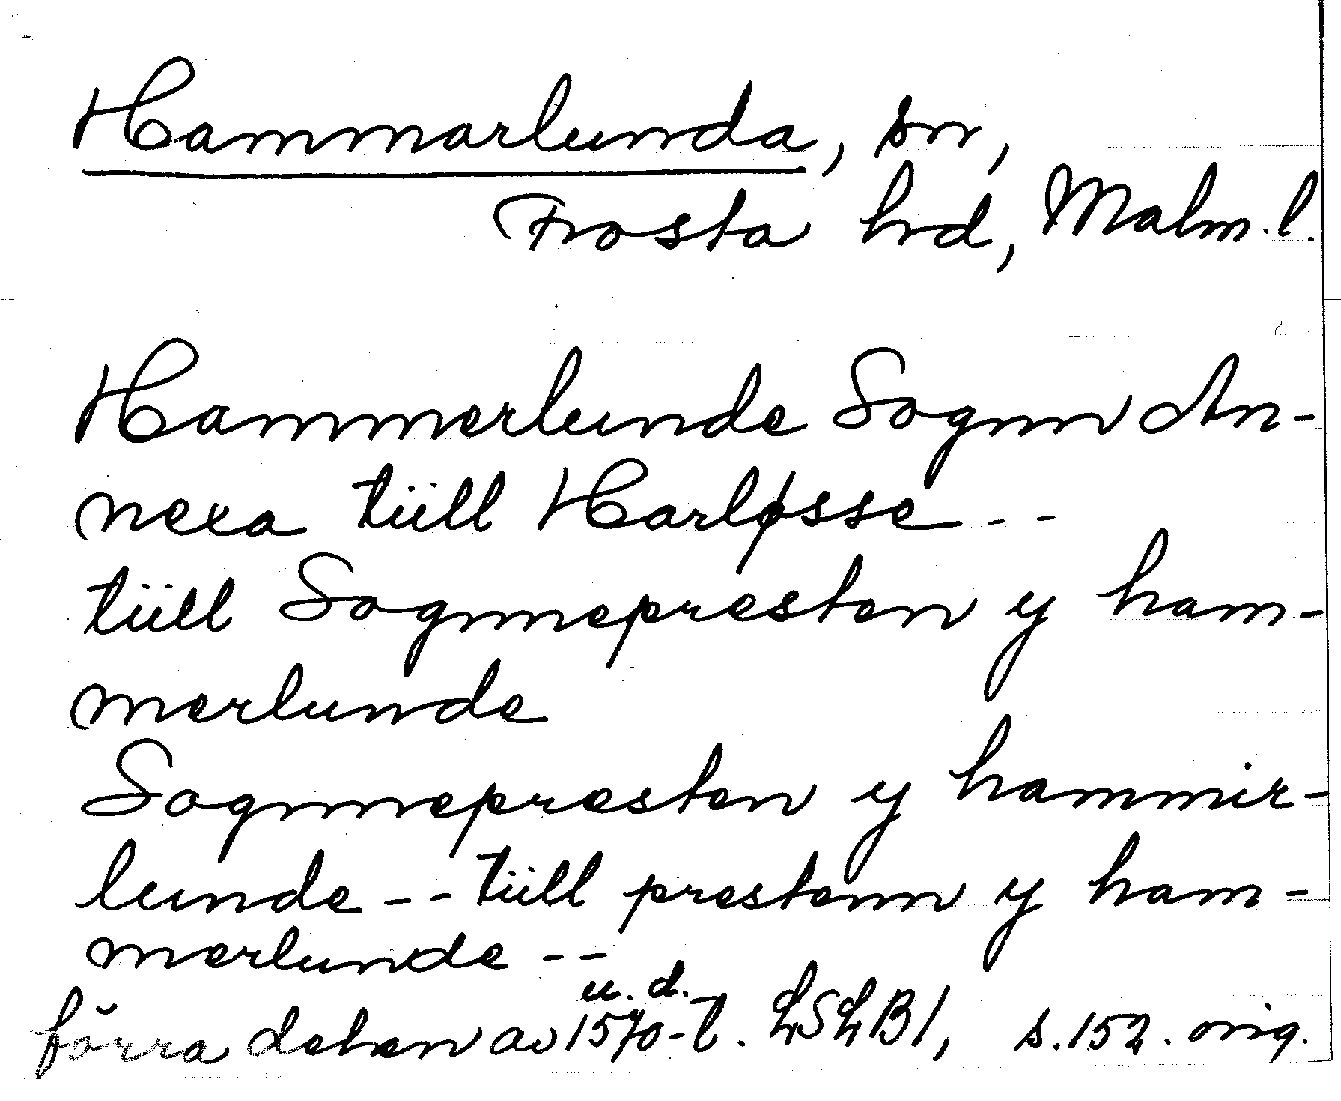 Hammarlunda, sn,
Frosta hrd, Malm. l.
Hammerlunde Sognn An-
nexa tiill Harløsse - -
tiill Sognnepresten y ham-
merlunde
Sognnepresten y hammir-
lunde - - tiill prestenn y ham-
merlunde - -
u. d.
förra delen av 1570-t. LSLB1, s. 152. orig.